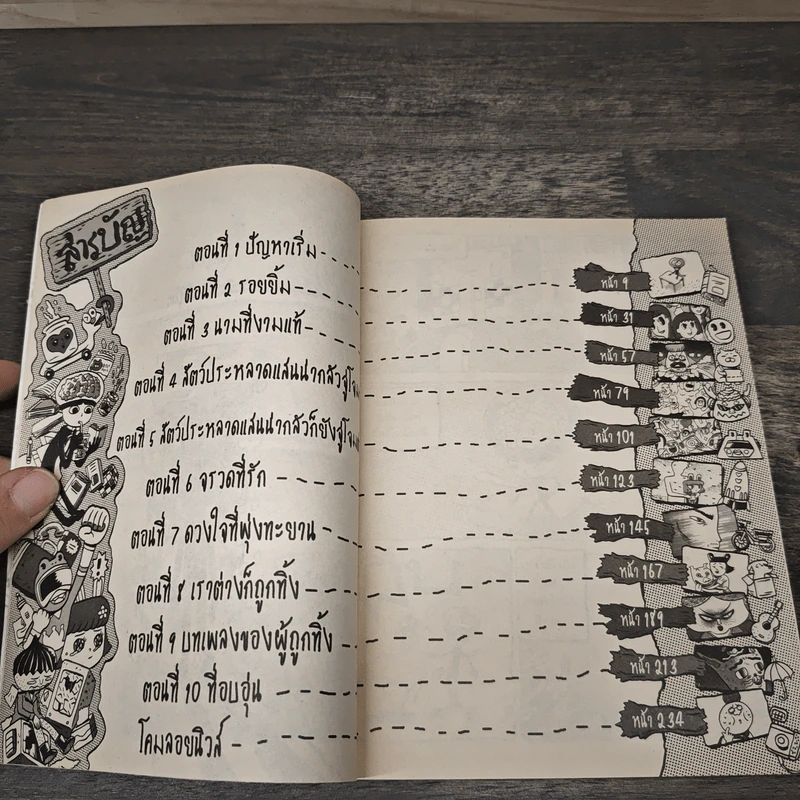 สารบัญ
ตอนที่ 1 ปัญหาเริ่ม
หน้า 9
ตอนที่ 2 รอยยิ้ม
หน้า 31
ตอนที่ 3 นามที่งามแท้
หน้า 57
ตอนที่ 4 สัตว์ประหลาดแสนน่ากลัวจู่โจม
หน้า 79
ตอนที่ 5 สัตว์ประหลาดแสนน่ากลัวก็ยังจู่โจม
หน้า 101
ตอนที่ 6 จรวดที่รัก
หน้า 123
ตอนที่ 7 ดวงใจที่พุ่งทะยาน
หน้า 145
ตอนที่ 8 เราต่างก็ถูกทิ้ง
หน้า 167
ตอนที่ 9 บทเพลงของผู้ถูกทิ้ง
หน้า 189
ตอนที่ 10 ที่อบอุ่น
หน้า 213
โคมลอยนิวส์
หน้า 234